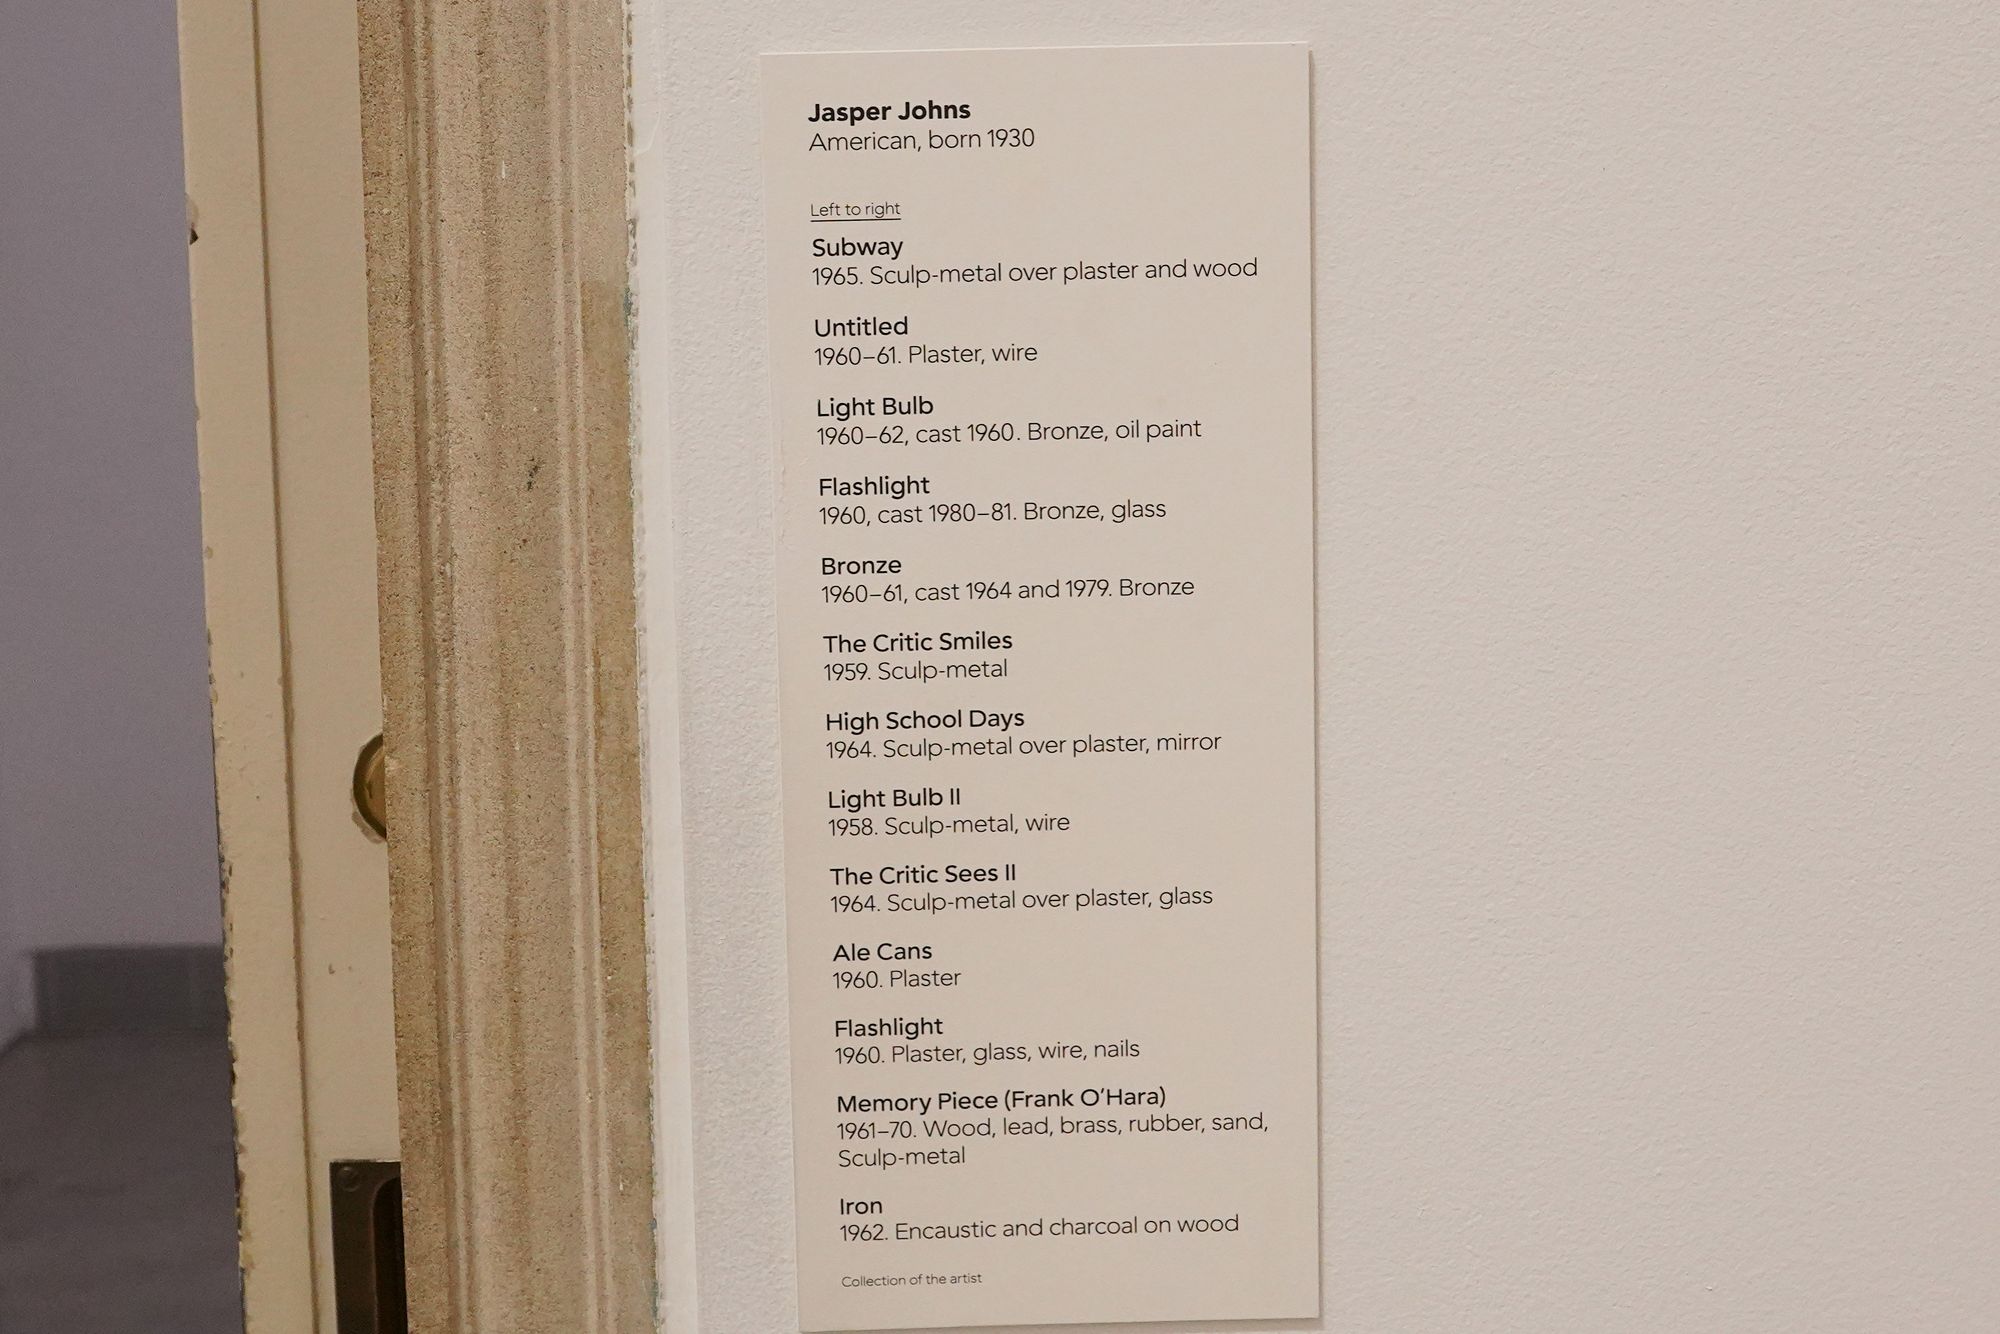 Jasper Johns
American, born 1930
Left to right
Subway
1965. Sculp-metal over plaster and wood
Untitled
1960–61. Plaster, wire
Light Bulb
1960–62, cast 1960. Bronze, oil paint
Flashlight
1960, cast 1980–81. Bronze, glass
Bronze
1960–61, cast 1964 and 1979. Bronze
The Critic Smiles
1959. Sculp-metal
High School Days
1964. Sculp-metal over plaster, mirror
Light Bulb II
1958. Sculp-metal, wire
The Critic Sees II
1964. Sculp-metal over plaster, glass
Ale Cans
1960. Plaster
Flashlight
1960. Plaster, glass, wire, nails
Memory Piece (Frank O’Hara)
1961–70. Wood, lead, brass, rubber, sand,
Sculp-metal
Iron
1962. Encaustic and charcoal on wood
Collection of the artist